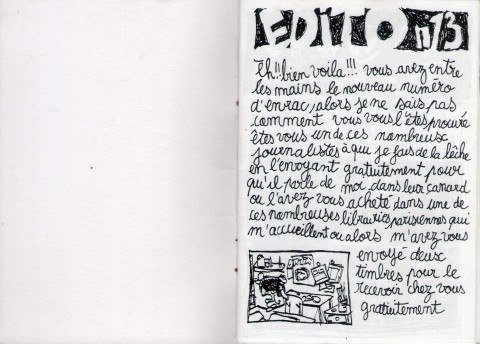 EDITO n°13
Eh!! bien voila!!! vous avez entre
les mains le nouveau numéro
d'enrac, alors je ne sais pas
comment vous vous l'êtes procuré
êtes vous un de ces nombreux
journalistes à qui je fais de la lèche
en l'envoyant gratuitement pour
qu'il parle de moi dans leur canard
ou l'avez vous acheté dans une de
ces nombreuses librairies parisiennes qui
m'accueillent ou alors m'avez vous
envoyé deux
timbres pour le
recevoir chez vous
gratuitement